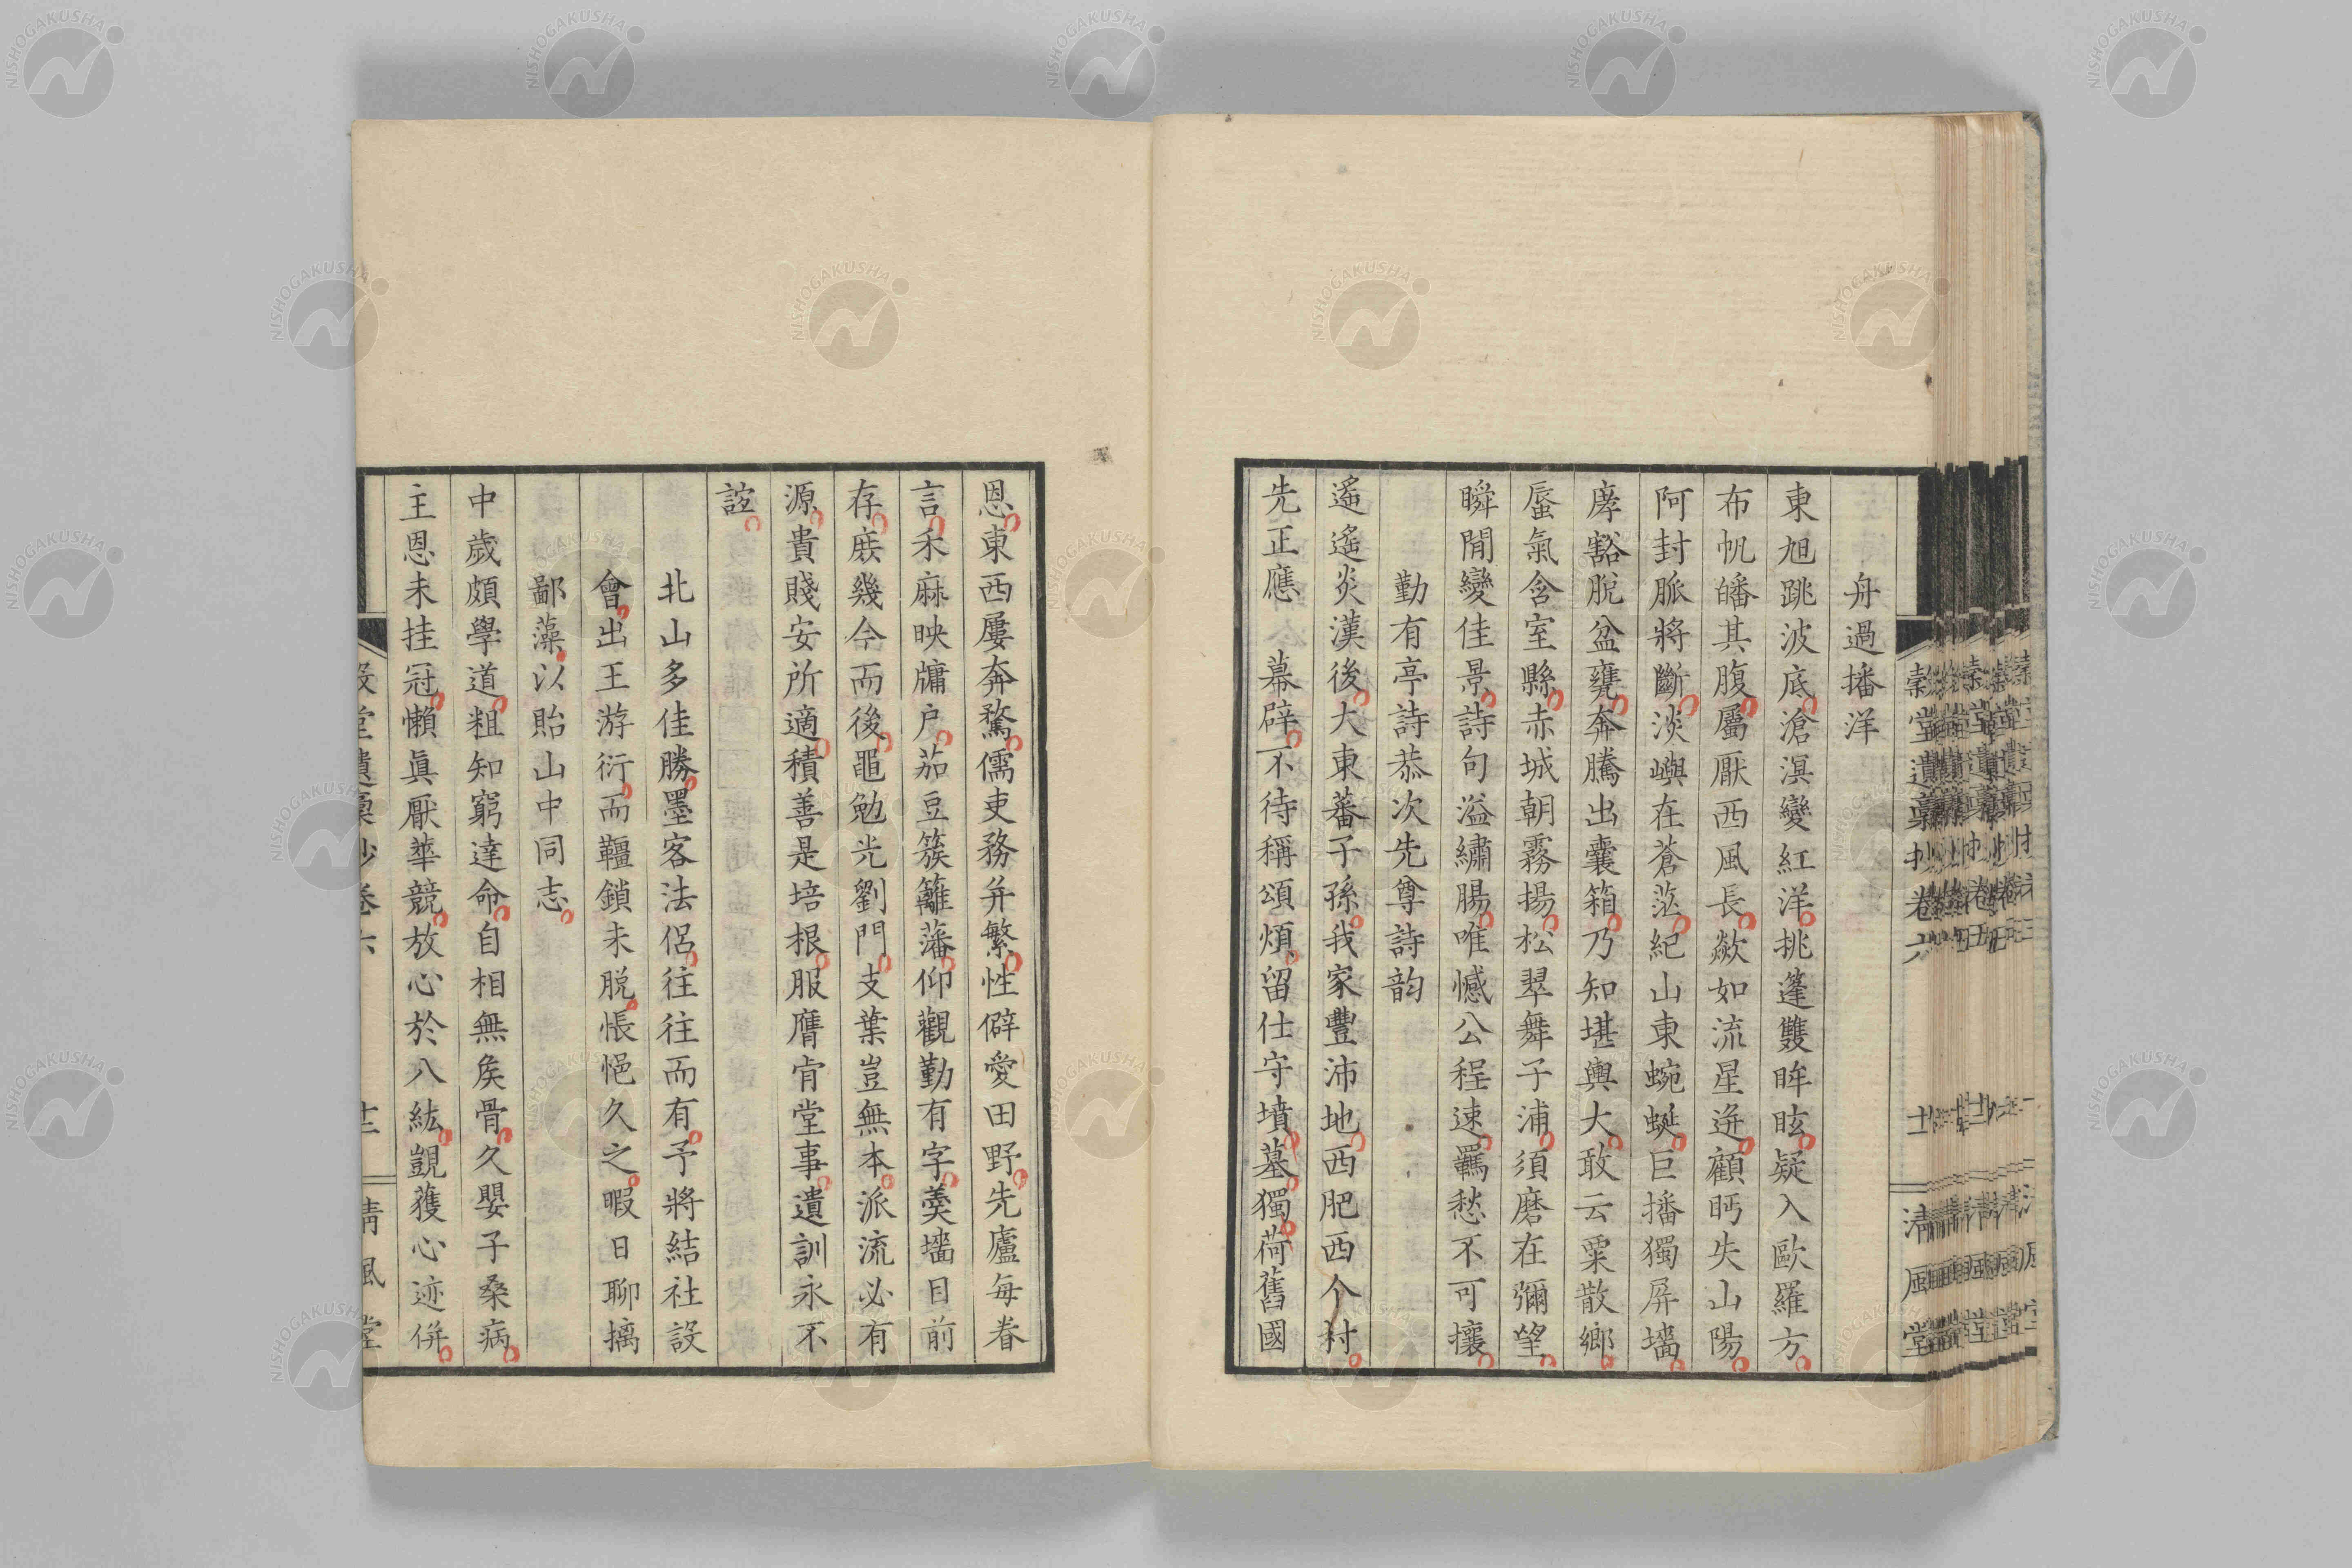 舟過播洋
東旭跳波底滄溟變紅洋挑篷雙眸眩疑入歐羅方
布帆皤其腹屬厭西風長歘如流星迸顧眄失山陽
阿封脈將斷淡嶼在蒼茫紀山東蜿蜒巨播獨屏墻
庨豁脫盆甕奔騰出囊箱乃知堪輿大敢云粟散鄉
蜃氣含室縣赤城朝霧揚松翠舞子浦須磨在彌望
瞬間變佳景詩句溢繡腸唯憾公程速羈愁不可攘
勤有亭詩恭次先尊詩韵
遙遙炎漢後大東蕃子孫我家豐沛地西肥西个村
先正應 幕辟不待稱頌煩留仕守墳墓獨荷舊國
恩東西屢奔騖儒吏務并繁性僻愛田野先廬每眷
言禾麻映牗戶茄豆簇籬藩仰觀勤有字羹墻目前
存庶幾今而後黽勉光劉門支葉豈無本派流必有
源貴賤安所適積善是培根服膺肯堂事遺訓永不
諠
北山多佳勝墨客法侶往往而有予將結社設
會出王游衍而韁鎖未脫悵悒久之暇日聊摛
鄙藻以貽山中同志
中歲頗學道粗知窮達命自相無矦骨久嬰子桑病
主恩未挂冠懶眞厭華競放心於八紘覬獲心迹併
堂遺稾抄卷六
清風堂
NISHOGAKUSHA